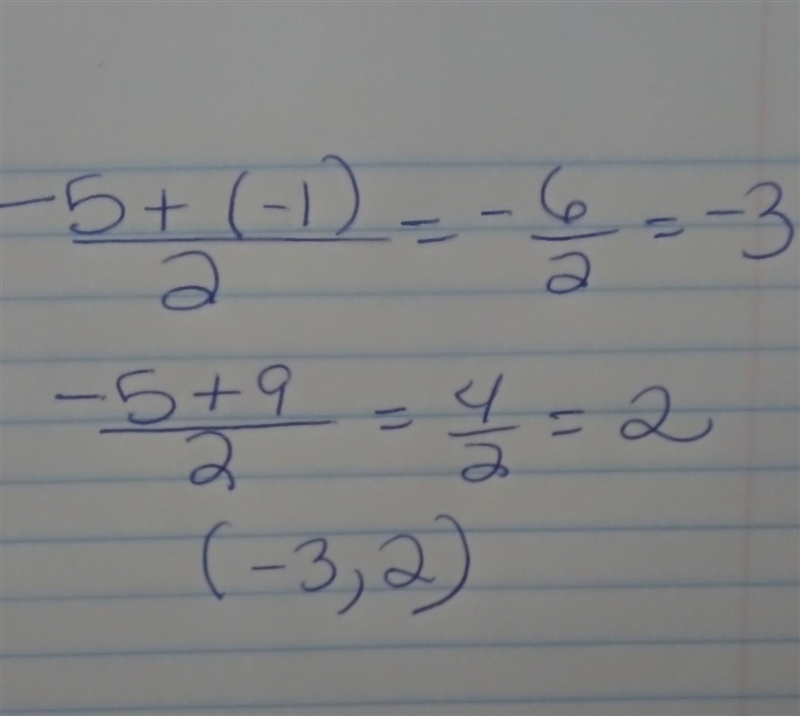 -5+(-1)/2 = -6/2 = -3
-5+9/2 = 4/2 = 2
(-3,2)